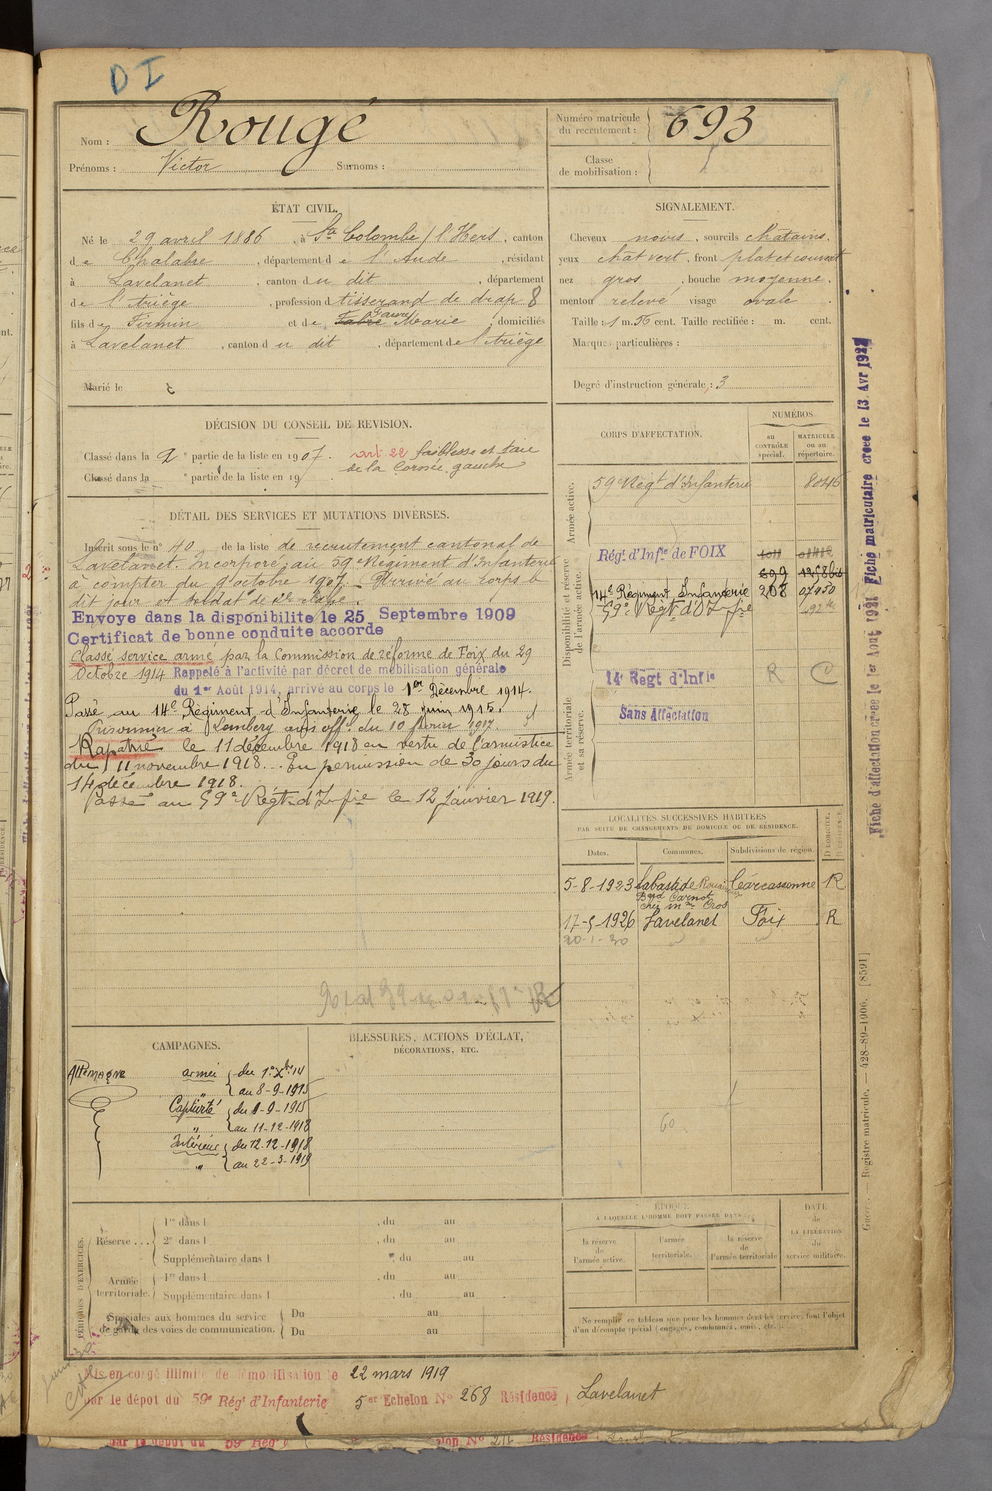 D I
Nom : Rougé
Prénoms : Victor Surnoms :
Numéro matricule du recrutement : 693
Classe de mobilisation :
ÉTAT CIVIL.
Né le 29 avril 1886, à Ste Colombe / l'Hers, canton
de Chalabre, département de l'Aude, résidant
à Lavelanet, canton du dit, département
de l'Ariège, profession de tisserand de drap 8
fils de Firmin et de Fabre Faure Marie, domiciliés
à Lavelanet, canton du dit, département de l'Ariège
Marié le
SIGNALEMENT.
Cheveux noirs, sourcils chatains,
yeux chat vert, front plat et couvert
nez gros, bouche moyenne,
menton relevé visage ovale
Taille : 1 m. 56 cent. Taille rectifiée : m. cent.
Marques particulières :
Degré d'instruction générale : 3
DÉCISION DU CONSEIL DE REVISION.
Classé dans la 2e partie de la liste en 1907. art 22 faiblesse et taie
de la Cornée gauche
Classé dans la e partie de la liste en 19
DÉTAIL DES SERVICES ET MUTATIONS DIVERSES.
Inscrit sous le n° 40 de la liste de recrutement cantonal de
Lavelanet. Incorporé au 59e Régiment d'Infanterie
à compter du 9 octobre 1907. Arrivé au corps le
dit jour et soldat de 2e classe.
Envoye dans la disponibilite le 25 Septembre 1909
Certificat de bonne conduite accorde
Classé service armé par la Commission de réforme de Foix du 29
Octobre 1914 Rappelé à l'activité par décret de mobilisation générale
du 1er Août 1914, arrivé au corps le 1er Décembre 1914.
Passé au 14e Régiment d'Infanterie le 28 juin 1915.
Prisonnier à Lemberg avis off. du 10 février 1917.
Rapatrié le 11 décembre 1918 en vertu de l'armistice
du 11 novembre 1918. En permission de 30 jours du
14 décembre 1918.
Passé au 59e Régt d'Infie le 12 janvier 1919.
CORPS D'AFFECTATION.
NUMÉROS
au CONTRÔLE spécial.
MATRICULE ou au répertoire.
Armée active.
59e Régt d'Infanterie 8046
Disponibilité et réserve de l'armée active.
Régt d'Infie de FOIX 1011
699
14e Régiment Infanterie 208 07450
59e Régt d'Infie
Armée territoriale et sa réserve.
14e Regt d'Infie R C
Sans Affectation
Fiche d'affectation créée le 1er Aout 1921 Fiche matriculaire creee le 13 Avr 1922
LOCALITÉS SUCCESSIVES HABITÉES
PAR SUITE DE CHANGEMENTS DE DOMICILE OU DE RÉSIDENCE.
Dates. Communes. Subdivisions de région. D DOMICILE. R RÉSIDENCE.
5-8-1923 Labastide Rouairoux Carcassonne R
Bd Carnot
chez Mme Cros
17-5-1926 Lavelanet Foix R
20-1-30
60
CAMPAGNES.
Allemagne armée du 1er Xbre 14
" au 8-9-1915
Captivité du 9-9-1915
" au 11-12-1918
Intérieur du 12-12-1918
" au 22-3-1919
BLESSURES, ACTIONS D'ÉCLAT,
DÉCORATIONS, ETC.
PÉRIODES D'EXERCICES.
Réserve ... 1re dans l , du au
2e dans l , du au
Supplémentaire dans l , du au
Armée territoriale. 1re dans l , du au
Supplémentaire dans l , du au
Spéciales aux hommes du service
de garde des voies de communication. Du au
Du au
ÉPOQUE
À LAQUELLE L'HOMME DOIT PASSER DANS
la réserve de l'armée active.
l'armée territoriale.
la réserve de l'armée territoriale
DATE de LA LIBÉRATION du service militaire.
Ne remplir ce tableau que pour les hommes dont les services font l'objet
d'un décompte spécial (engagés, condamnés, omis, etc.).
Guerre. Registre matricule. — 428-89-1906. [8591]
Mis en congé illimité de démobilisation le 22 mars 1919
par le dépot du 59e Régt d'Infanterie 5er Echelon N° 268 Résidence Lavelanet
par le dépot du 59e Rég